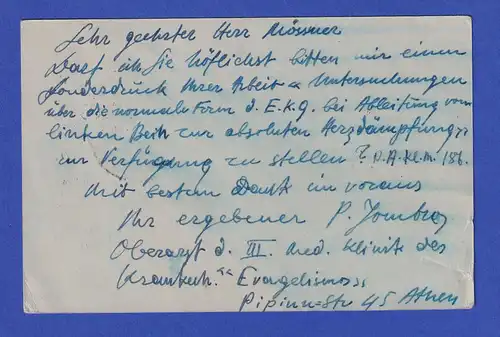 Sehr geehrter Herr Mössmer
Darf ich Sie höflichst bitten mir einen
Sonderdruck Ihrer Arbeit « Untersuchungen
über die normale Form d. E.K.G. bei Ableitung vom
linken Bein zur absoluten Herzdämpfung »
zur Verfügung zu stellen ? D. A. kl. M. 186.
Mit bestem Dank im voraus
Ihr ergebener P.
Oberarzt d. III. med. Klinik des
Krankenh. "Evangelismos"
Str 45 Athen